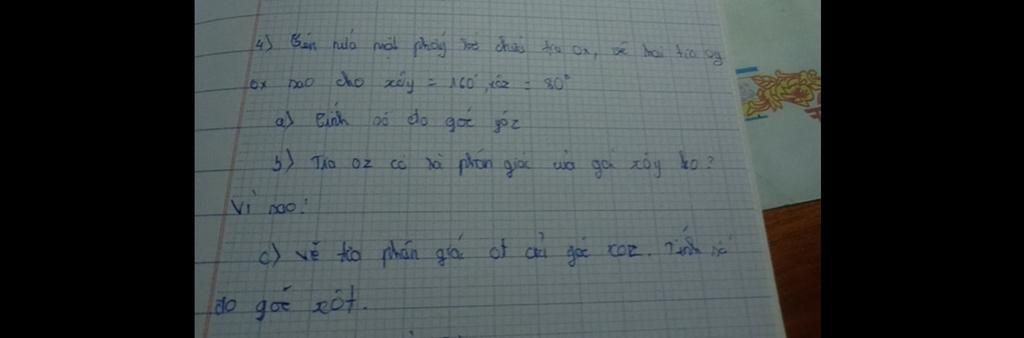 4) Bên nửa mặt phẳng bờ chứa tia ox, vẽ hai tia oy
ox sao cho xôy = 160°, xôz = 80°
a) Tính số đo góc yôz
b) Tia oz có là phân giác của góc xôy ko?
Vì sao?
c) Vẽ tia phân giác ot của góc xoz. Tính số
đo góc xôt.